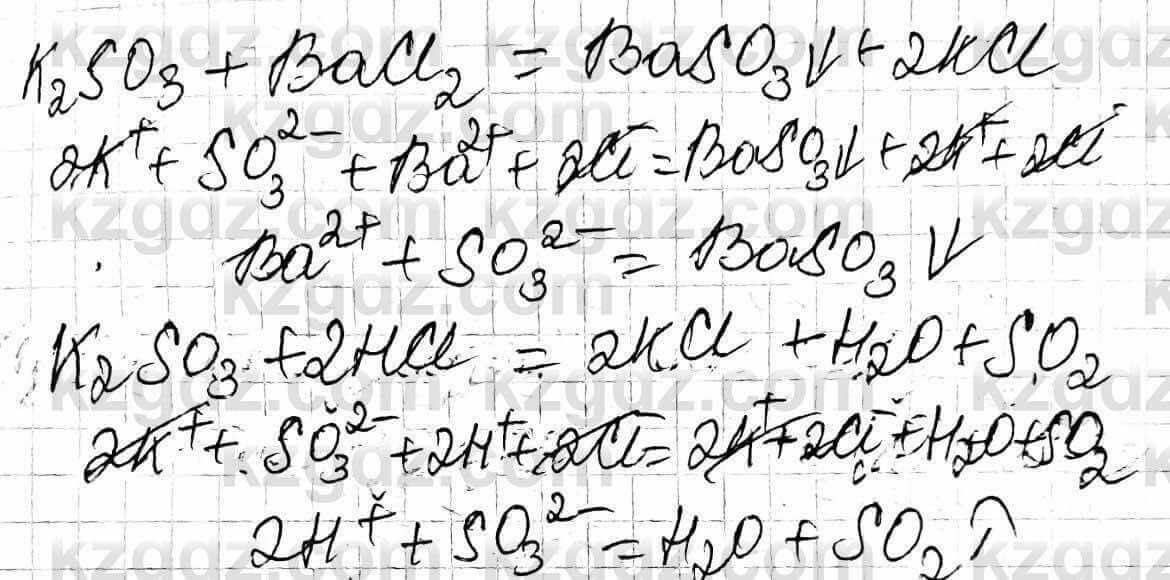 K₂SO₃ + BaCl₂ = BaSO₃↓ + 2KCl
2K⁺ + SO₃²⁻ + Ba²⁺ + 2Cl⁻ = BaSO₃↓ + 2K⁺ + 2Cl⁻
Ba²⁺ + SO₃²⁻ = BaSO₃↓
K₂SO₃ + 2HCl = 2KCl + H₂O + SO₂
2K⁺ + SO₃²⁻ + 2H⁺ + 2Cl⁻ = 2K⁺ + 2Cl⁻ + H₂O + SO₂
2H⁺ + SO₃²⁻ = H₂O + SO₂↑
kzgdz.com